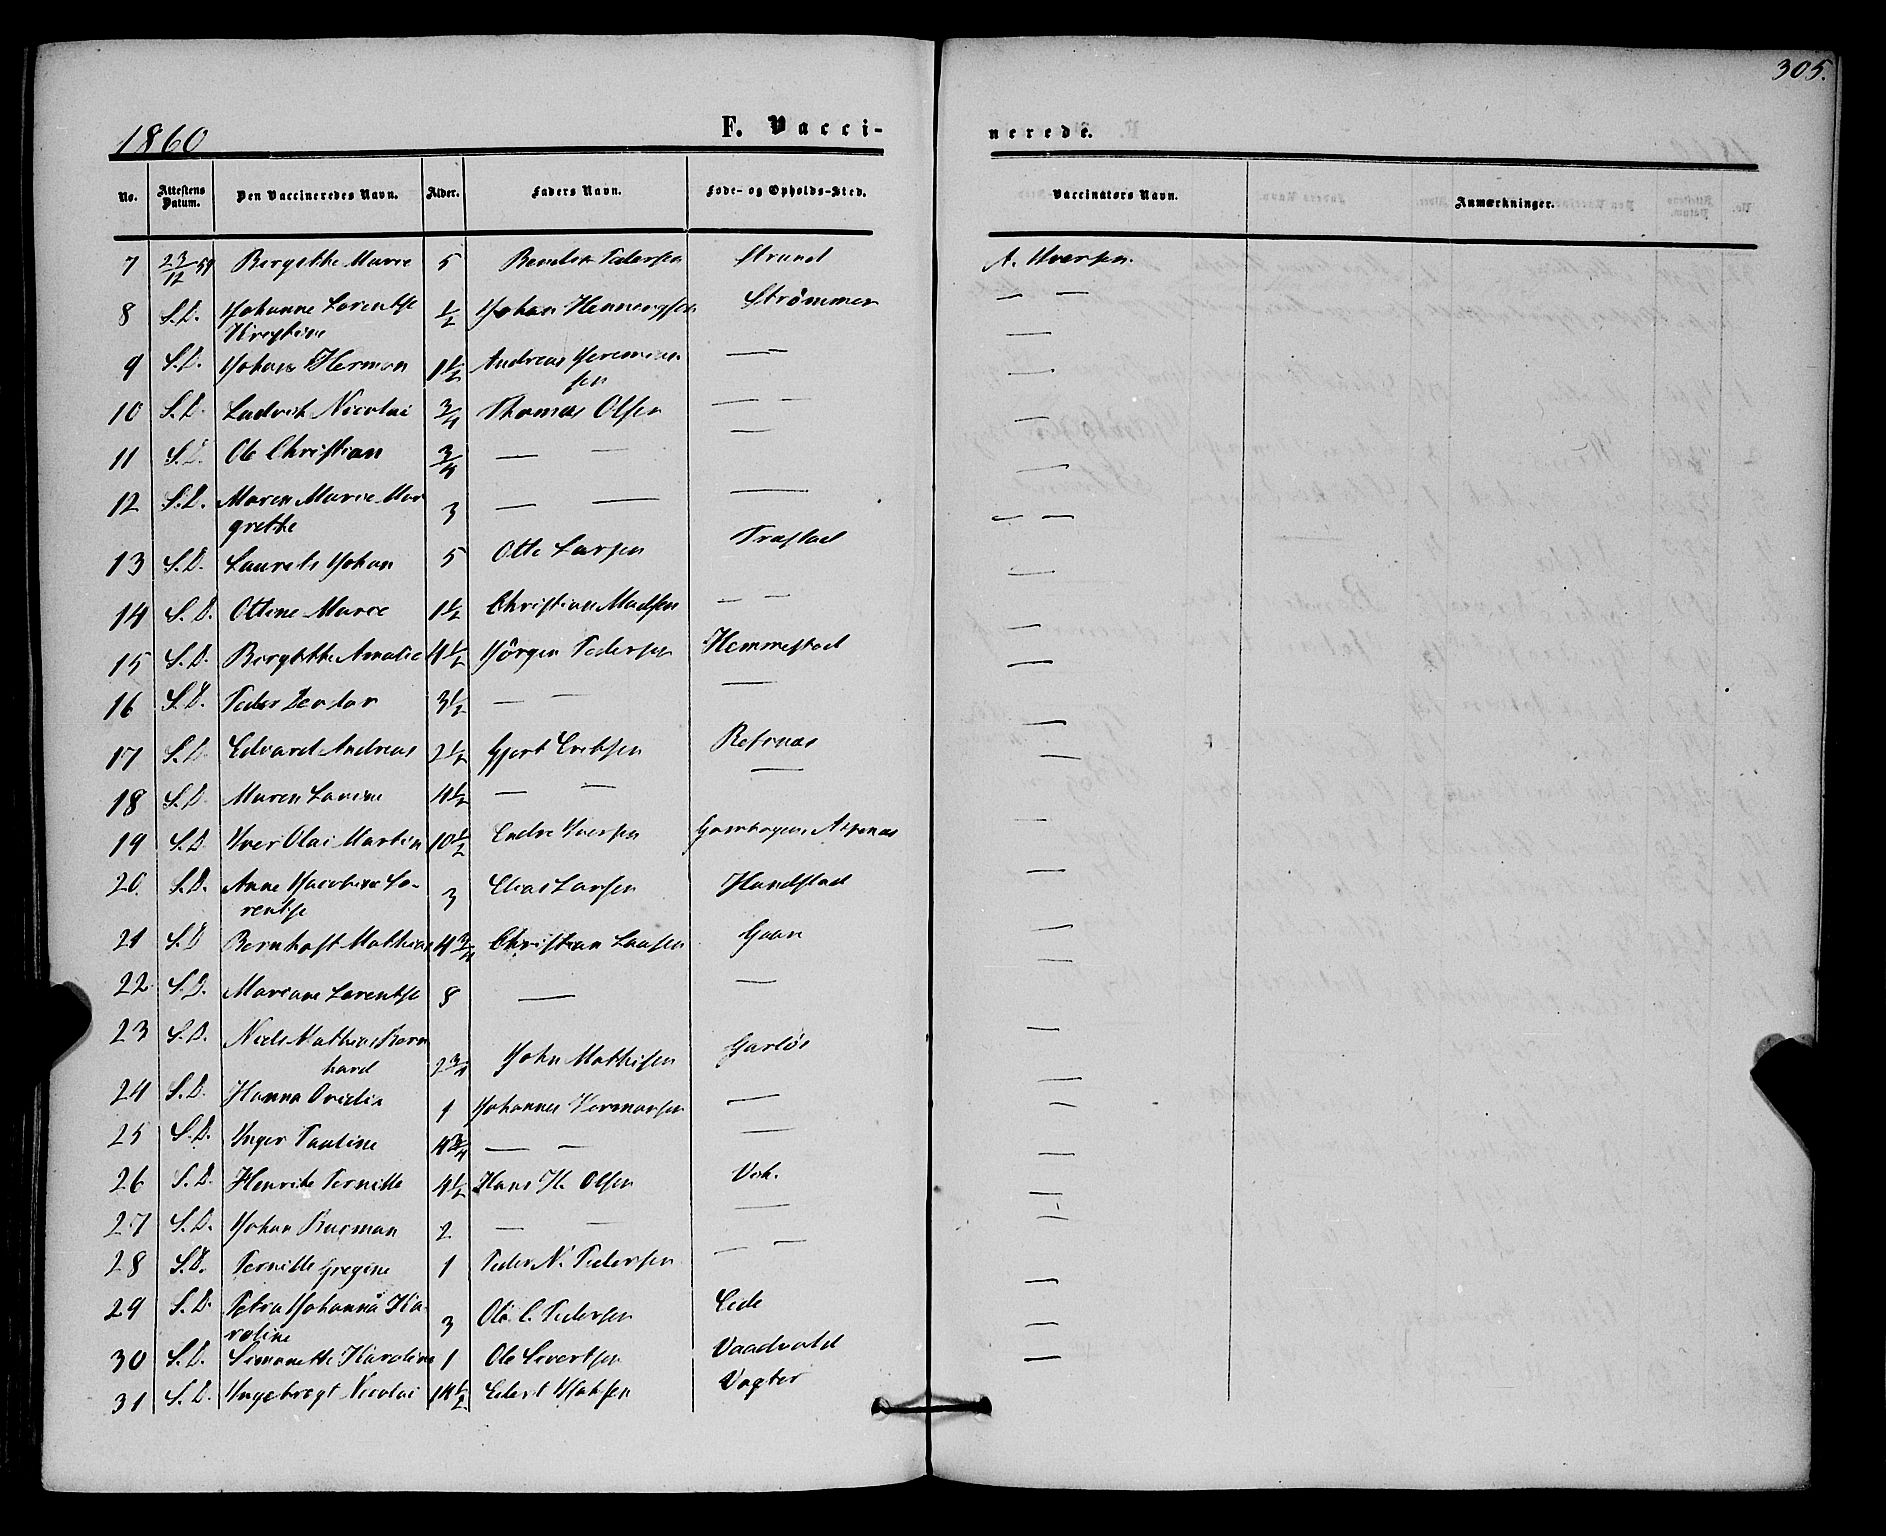 305.
1860 F. Vacci- nerede.
No. Attestens Datum. Den Vaccineredes Navn. Alder. Faders Navn. Føde- og Opholds-Sted. Vaccinators Navn. Anmærkninger.
7 23/12 59 Bergithe Marie 5 Pedersen Strand A. Iversen.
8 S.D. Johanne Lorentse ½ Johan Henningsen Strømmen — —
9 S.D. Johan Herman 1½ Andreas Jeremias- — — —
sen
10 S.D. Ludvik Nicolai ¾ Thomas Olsen — — —
11 S.D. Ole Christian ¾ — — — —
12 S.D. Maren Marie Mar 3 — — — —
grethe
13 S.D. Laurits Johan 5 Otte Larsen Trastad — —
14 S.D. Ottine Marie 1½ Christian Madsen — — —
15 S.D. Bergithe Amalie 4½ Jørgen Pedersen Hemmestad —
16 S.D. Peder 3½ — — — —
17 S.D. Edvard Andreas 2½ Gjert Eriksen Refsnæs —
18 S.D. Maren Lovise 4½ — — — —
19 S.D. Iver Olai Martin 10½ Endre Iversen —
20 S.D. Anne Jacobine Lo- 3 Elias Larsen Handstad —
rentse
21 S.D. Bernhoft Mathias 4¾ Christian Laasen Gaan —
22 S.D. Mariane Lorentse 8 — — —
23 S.D. Niels Mathias Bern 2¾ John Mathisen Garløs —
hard
24 S.D. Hanna Ovidia 1 Johannes — —
25 S.D. Inger Pauline 4¾ — — — —
26 S.D. Henrike Pernille 4½ Hans H. Olsen Vik. —
27 S.D. Johan 2 — — — —
28 S.D. Pernille Gregine 1 Peder N. Pedersen — — —
29 S.D. Petra Johanna Ka- 3 Ole C. Pedersen Eide —
roline
30 S.D. Simonette Karoline 1 Ole Sivertsen —
31 S.D. Ingebrigt Nicolai 14½ —